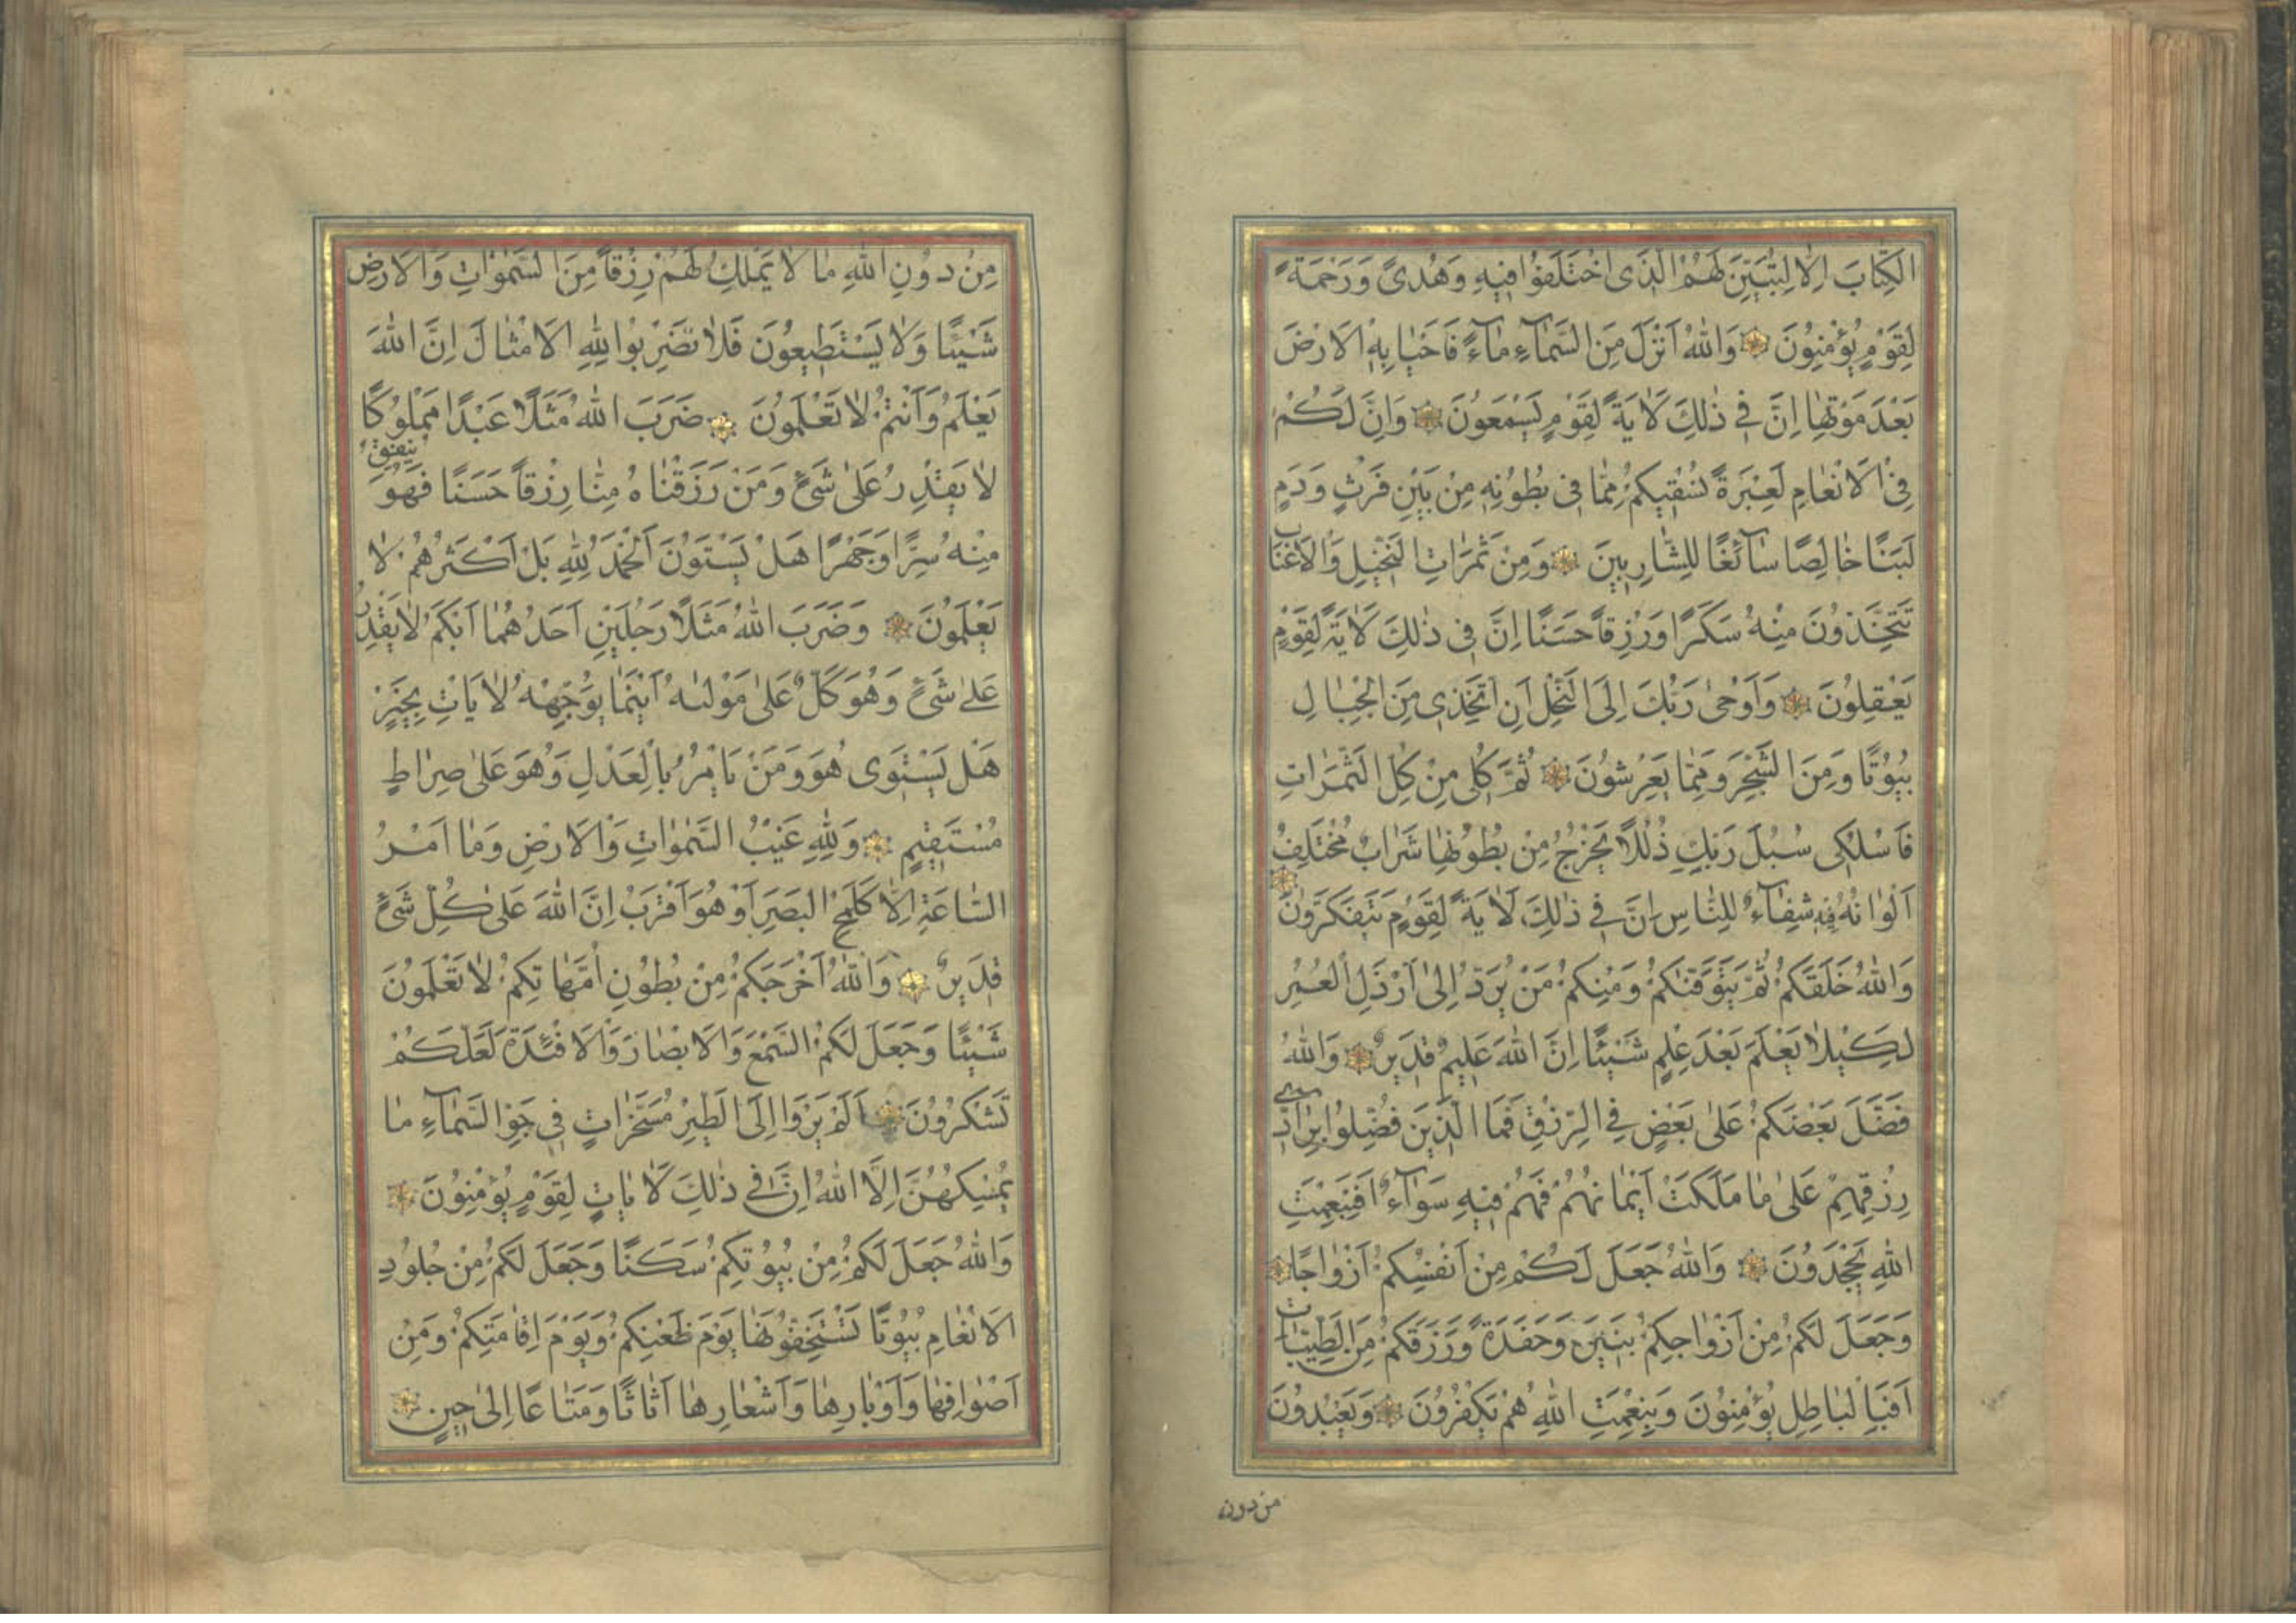 الْكِتَابَ اِلَّا لِتُبَيِّنَ لَهُمُ الَّذِى اخْتَلَفُوا فِيهِ وَهُدًى وَرَحْمَةً
لِقَوْمٍ يُؤْمِنُونَ وَاللّٰهُ اَنْزَلَ مِنَ السَّمَآءِ مَآءً فَاَحْيَا بِهِ الْاَرْضَ
بَعْدَ مَوْتِهَا اِنَّ فِى ذٰلِكَ لَاٰيَةً لِقَوْمٍ يَسْمَعُونَ وَاِنَّ لَكُمْ
فِى الْاَنْعَامِ لَعِبْرَةً نُسْقِيكُمْ مِمَّا فِى بُطُونِهِ مِنْ بَيْنِ فَرْثٍ وَدَمٍ
لَبَنًا خَالِصًا سَآئِغًا لِلشَّارِبِينَ وَمِنْ ثَمَرَاتِ النَّخِيلِ وَالْاَعْنَابِ
تَتَّخِذُونَ مِنْهُ سَكَرًا وَرِزْقاً حَسَنًا اِنَّ فِى ذٰلِكَ لَاٰيَةً لِقَوْمٍ
يَعْقِلُونَ وَاَوْحٰى رَبُّكَ اِلَى النَّحْلِ اَنِ اتَّخِذِى مِنَ الْجِبَالِ
بُيُوتًا وَمِنَ الشَّجَرِ وَمِمَّا يَعْرِشُونَ ثُمَّ كُلِى مِنْ كُلِّ الثَّمَرَاتِ
فَاسْلُكِى سُبُلَ رَبِّكِ ذُلُلًا يَخْرُجُ مِنْ بُطُونِهَا شَرَابٌ مُخْتَلِفٌ
اَلْوَانُهُ فِيهِ شِفَآءٌ لِلنَّاسِ اِنَّ فِى ذٰلِكَ لَاٰيَةً لِقَوْمٍ يَتَفَكَّرُونَ
وَاللّٰهُ خَلَقَكُمْ ثُمَّ يَتَوَفّٰىكُمْ وَمِنْكُمْ مَنْ يُرَدُّ اِلٰى اَرْذَلِ الْعُمُرِ
لِكَيْلَا يَعْلَمَ بَعْدَ عِلْمٍ شَيْئًا اِنَّ اللّٰهَ عَلِيمٌ قَدِيرٌ وَاللّٰهُ
فَضَّلَ بَعْضَكُمْ عَلٰى بَعْضٍ فِى الرِّزْقِ فَمَا الَّذِينَ فُضِّلُوا بِرَآدِّى
رِزْقِهِمْ عَلٰى مَا مَلَكَتْ اَيْمَانُهُمْ فَهُمْ فِيهِ سَوَآءٌ اَفَبِنِعْمَتِ
اللّٰهِ يَجْحَدُونَ وَاللّٰهُ جَعَلَ لَكُمْ مِنْ اَنْفُسِكُمْ اَزْوَاجًا
وَجَعَلَ لَكُمْ مِنْ اَزْوَاجِكُمْ بَنِينَ وَحَفَدَةً وَرَزَقَكُمْ مِنَ الطَّيِّبَاتِ
اَفَبِالْبَاطِلِ يُؤْمِنُونَ وَبِنِعْمَتِ اللّٰهِ هُمْ يَكْفُرُونَ وَيَعْبُدُونَ
من دون
مِنْ دُونِ اللّٰهِ مَا لَا يَمْلِكُ لَهُمْ رِزْقاً مِنَ السَّمٰوَاتِ وَالْاَرْضِ
شَيْئًا وَلَا يَسْتَطِيعُونَ فَلَا تَضْرِبُوا لِلّٰهِ الْاَمْثَالَ اِنَّ اللّٰهَ
يَعْلَمُ وَاَنْتُمْ لَا تَعْلَمُونَ ضَرَبَ اللّٰهُ مَثَلًا عَبْدًا مَمْلُوكًا
لَا يَقْدِرُ عَلٰى شَىْءٍ وَمَنْ رَزَقْنَاهُ مِنَّا رِزْقاً حَسَنًا فَهُوَ يُنْفِقُ
مِنْهُ سِرًّا وَجَهْرًا هَلْ يَسْتَوُنَ اَلْحَمْدُ لِلّٰهِ بَلْ اَكْثَرُهُمْ لَا
يَعْلَمُونَ وَضَرَبَ اللّٰهُ مَثَلًا رَجُلَيْنِ اَحَدُهُمَا اَبْكَمُ لَا يَقْدِرُ
عَلٰى شَىْءٍ وَهُوَ كَلٌّ عَلٰى مَوْلٰىهُ اَيْنَمَا يُوَجِّهْهُ لَا يَاْتِ بِخَيْرٍ
هَلْ يَسْتَوِى هُوَ وَمَنْ يَاْمُرُ بِالْعَدْلِ وَهُوَ عَلٰى صِرَاطٍ
مُسْتَقِيمٍ وَلِلّٰهِ غَيْبُ السَّمٰوَاتِ وَالْاَرْضِ وَمَا اَمْرُ
السَّاعَةِ اِلَّا كَلَمْحِ الْبَصَرِ اَوْ هُوَ اَقْرَبُ اِنَّ اللّٰهَ عَلٰى كُلِّ شَىْءٍ
قَدِيرٌ وَاللّٰهُ اَخْرَجَكُمْ مِنْ بُطُونِ اُمَّهَاتِكُمْ لَا تَعْلَمُونَ
شَيْئًا وَجَعَلَ لَكُمُ السَّمْعَ وَالْاَبْصَارَ وَالْاَفْئِدَةَ لَعَلَّكُمْ
تَشْكُرُونَ اَلَمْ يَرَوْا اِلَى الطَّيْرِ مُسَخَّرَاتٍ فِى جَوِّ السَّمَآءِ مَا
يُمْسِكُهُنَّ اِلَّا اللّٰهُ اِنَّ فِى ذٰلِكَ لَاٰيَاتٍ لِقَوْمٍ يُؤْمِنُونَ
وَاللّٰهُ جَعَلَ لَكُمْ مِنْ بُيُوتِكُمْ سَكَنًا وَجَعَلَ لَكُمْ مِنْ جُلُودِ
الْاَنْعَامِ بُيُوتًا تَسْتَخِفُّونَهَا يَوْمَ ظَعْنِكُمْ وَيَوْمَ اِقَامَتِكُمْ وَمِنْ
اَصْوَافِهَا وَاَوْبَارِهَا وَاَشْعَارِهَا اَثَاثًا وَمَتَاعًا اِلٰى حِينٍ